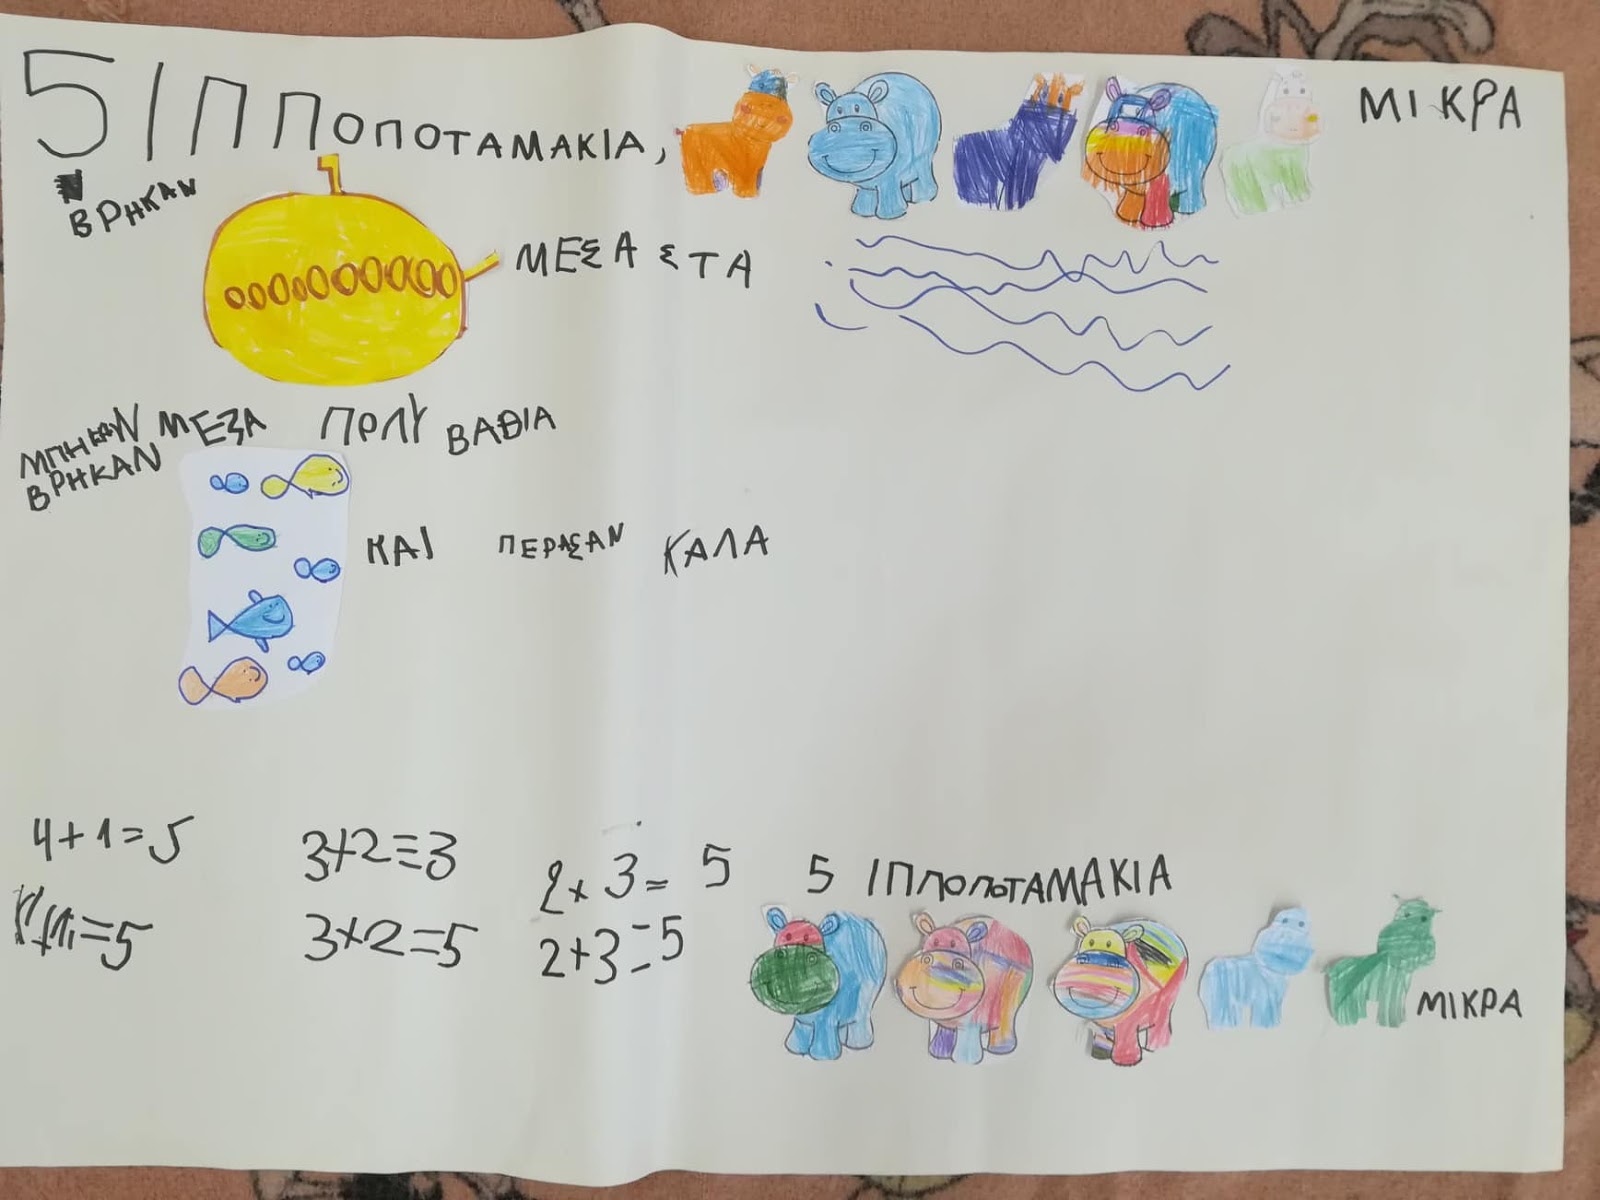 5 ΙΠΠΟΠΟΤΑΜΑΚΙΑ, ΜΙΚΡΑ
ΒΡΗΚΑΝ
ΜΕΣΑ ΣΤΑ
ΜΠΗΚΑΝ ΜΕΣΑ ΠΟΛΥ ΒΑΘΙΑ
ΒΡΗΚΑΝ
ΚΑΙ ΠΕΡΑΣΑΝ ΚΑΛΑ
4+1=5 3+2=3 2+3=5 5 ΙΠΠΟΠΟΤΑΜΑΚΙΑ
=5 3+2=5 2+3=5
ΜΙΚΡΑ